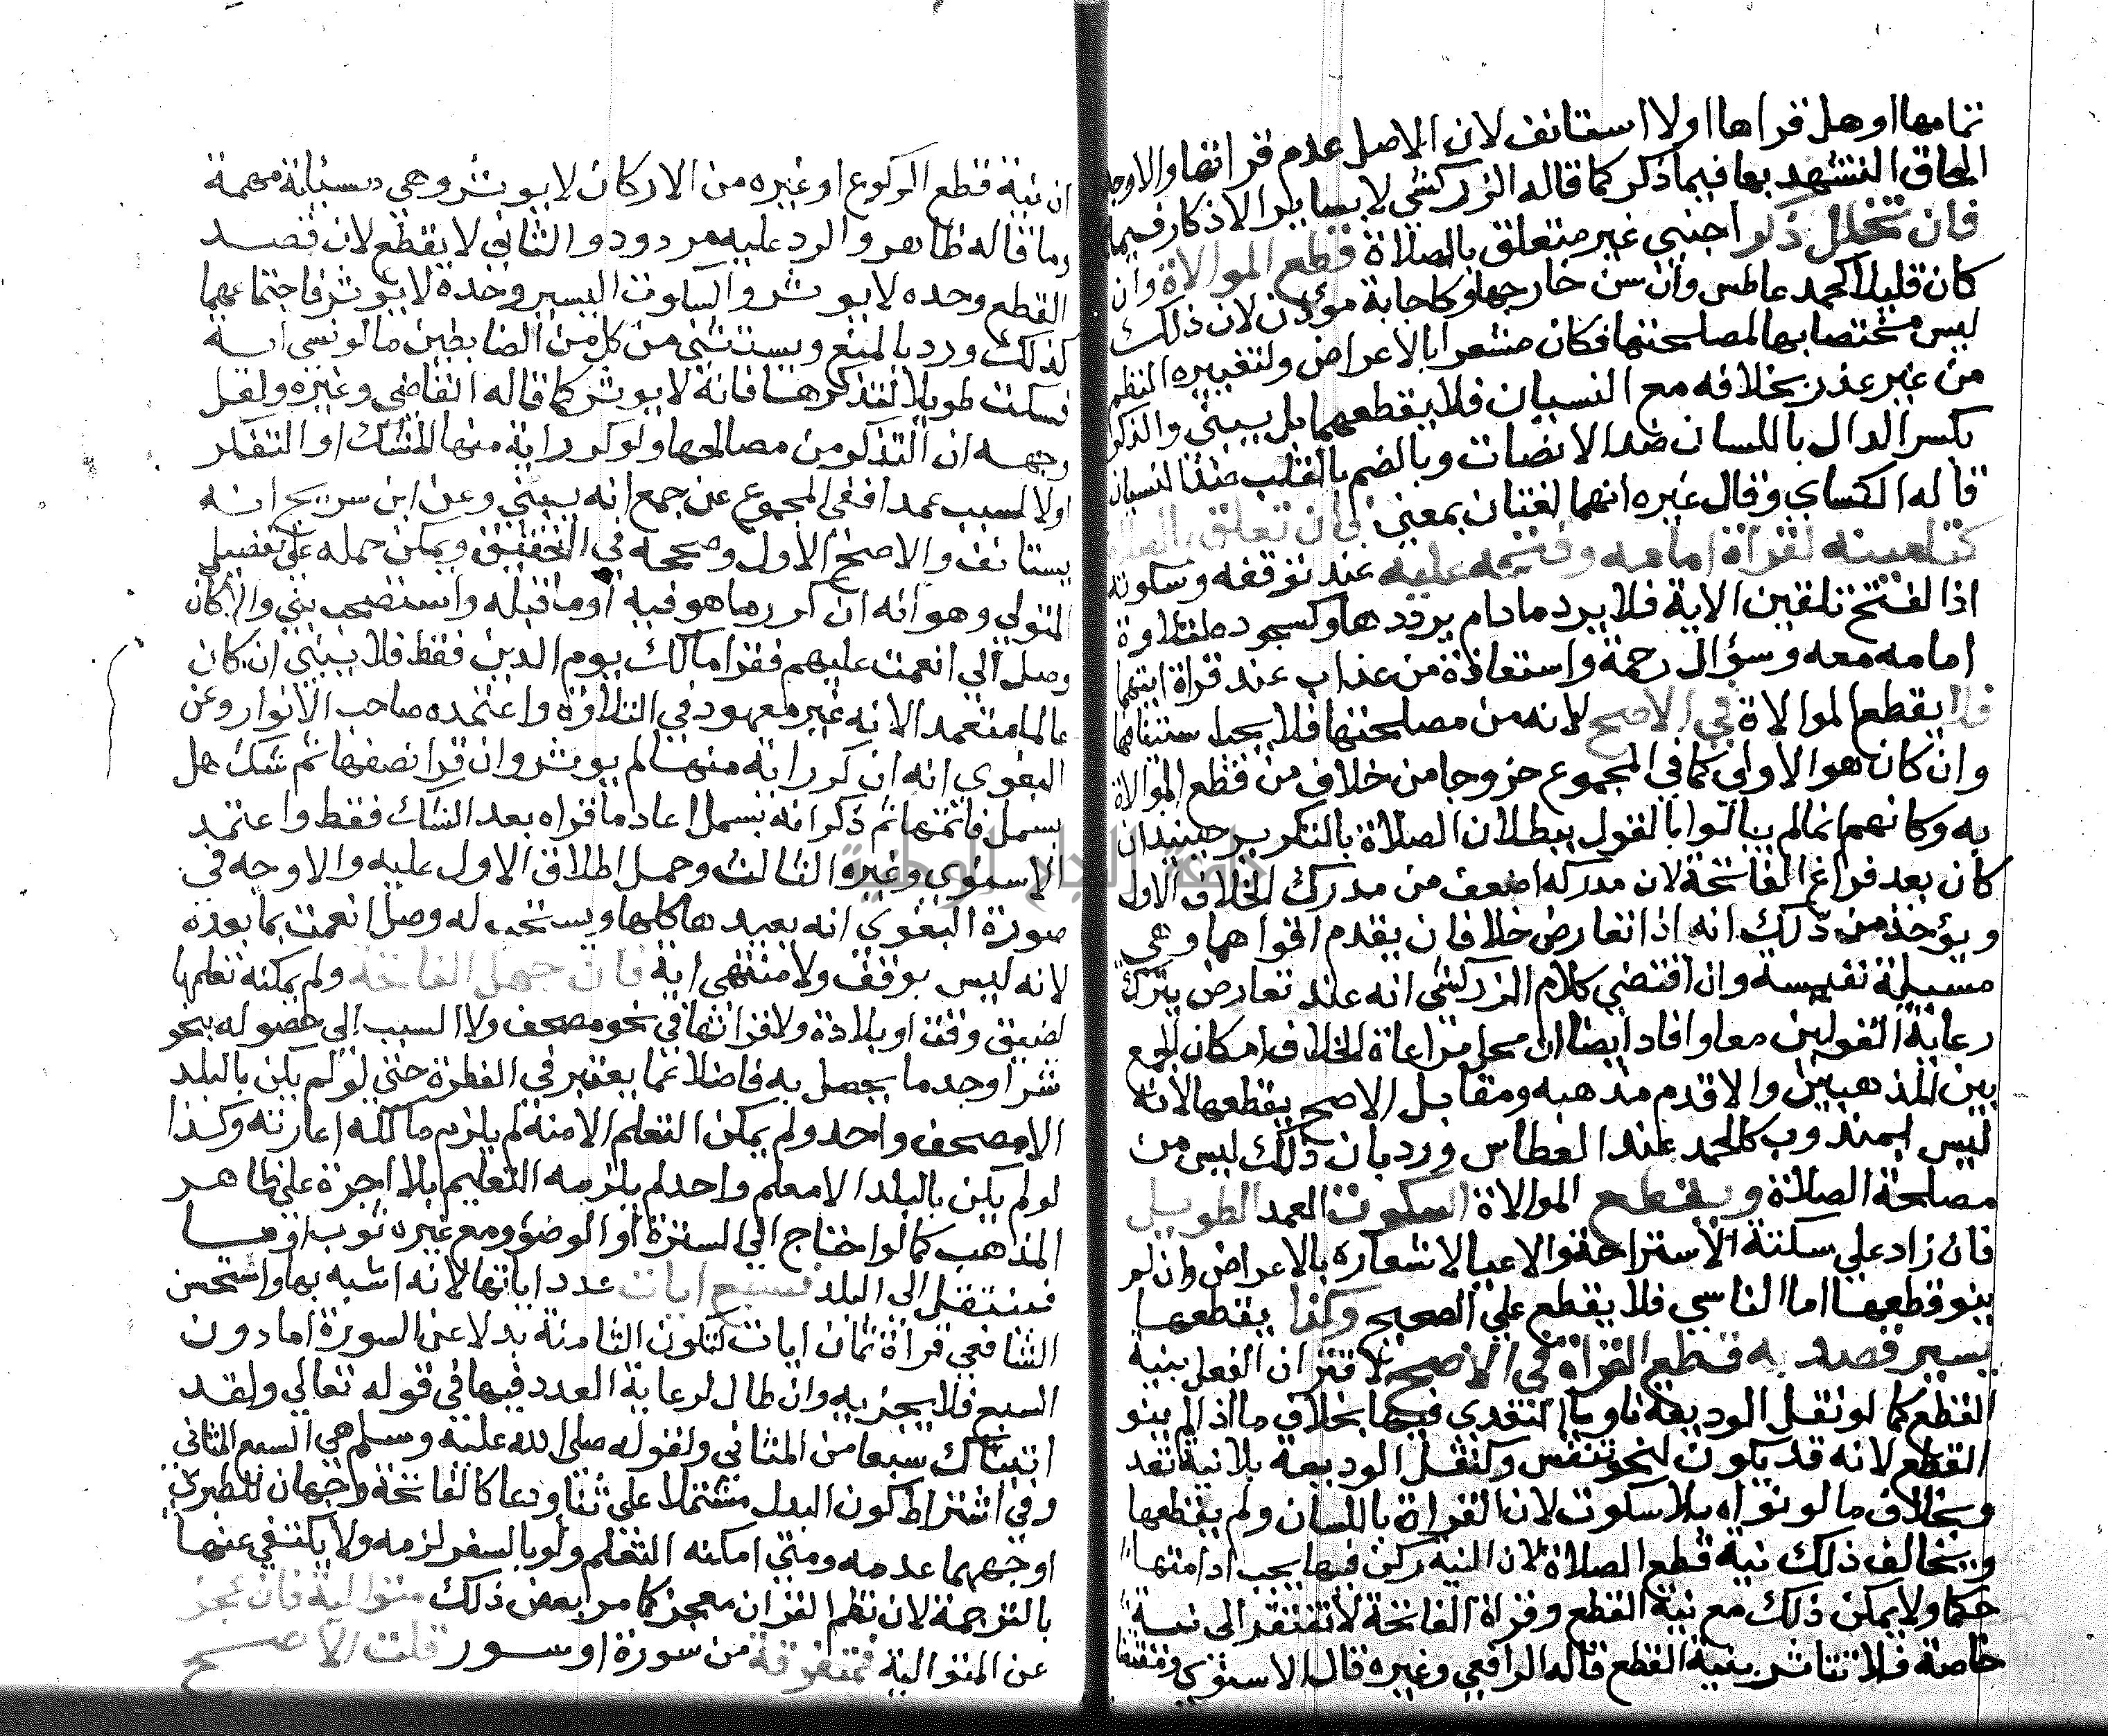 تمامها او هل قراها اولا استانف لان الاصل عدم قراتها والاوجه
الحاق التشهد بها فيما ذكر كما قاله الزركشي لا بساير الاذكار فيما
فان تخلل ذكر اجنبي غير متعلق بالصلاة قطع الموالاة وان
كان قليلا كحمد عاطس وان سن خارجها وكاجابة مؤذن لان ذلك
ليس مختصا بها لمصلحتها فكان مشعرا بالاعراض ولتغييره النظم
من غير عذر بخلافه مع النسيان فلا يقطعها بل يبني والذكر
بكسر الدال باللسان ضد الانصات وبالضم بالقلب ضد النسيان
قاله الكساي وقال غيره انهما لغتان بمعني فان تعلق بالصلاة
كتامينه لقراة امامه وفتحه عليه عند توقفه وسكوته
اذ الفتح تلقين الاية فلا يرد مادام يرددها وكسجوده لتلاوة
امامه معه وسؤال رحمة واستعاذة من عذاب عند قراة ايتهما
فلا يقطع الموالاة في الاصح لانه من مصلحتها فلا يجب استينافها
وان كان هو الاولي كما في المجموع خروجا من خلاف من قطع الموالاة
به وكانهم انما لم يبالوا بالقول ببطلان الصلاة بالتكرير حينيذ ان
كان بعد فراغ الفاتحة لان مدركه اضعف من مدرك الخلاف الاول
ويؤخذ من ذلك انه اذا تعارض خلافان يقدم اقواهما وهي
مسيلة نفيسة وان اقتضي كلام الزركشي انه عند تعارض يترك
رعاية القولين معا وافاد ايضا ان محل مراعاة الخلاف امكان الجمع
بين المذهبين والاقدم مذهبه ومقابل الاصح يقطعها لانه
ليس بمندوب كالحمد عند العطاس ورد بان ذلك ليس من
مصلحة الصلاة ويقطع الموالاة السكوت العمد الطويل
فان زاد علي سكتة الاستراحة والاعيا لاشعاره بالاعراض وان لم
ينو قطعها اما الناسي فلا يقطع علي الصحيح وكذا يقطعها
يسير قصد به قطع القراة في الاصح لاقتران الفعل بنية
القطع كما لو نقل الوديعة ناويا التعدي فيها بخلاف ما اذا لم ينو
القطع لانه قد يكون لنحو تنفس وكنقل الوديعة بلانية تعد
وبخلاف ما لو نواه بلا سكوت لان القراة باللسان ولم يقطعها
ويخالف ذلك نية قطع الصلاة لان النيه ركن فيها يجب ادامتها
حكما ولا يمكن ذلك مع نية القطع وقراة الفاتحة لا تفتقر الي نية
خاصة فلا تتاثر بنية القطع قاله الرافعي وغيره قال الاسنوي ومقتضاه
ان نية قطع الركوع او غيره من الاركان لا يوثر وهي مسيلة مهمة
وما قاله ظاهر والرد عليه مردود والثاني لا يقطع لان قصد
القطع وحده لا يوثر والسكوت اليسير وحده لا يوثر فاجتماعهما
كذلك ورد بالمنع ويستثني من كل من الضابطين ما لو نسي اية
فسكت طويلا لتذكرها فانه لا يوثر كما قاله القاضي وغيره ولعل
وجهه ان التذكر من مصالحها ولو كرر اية منها للشك او التفكر
او لا لسبب عمدا ففي المجموع عن جمع انه يبني وعن ابن سريج انه
يستانف والاصح الاول وصححه في التحقيق ويمكن حمله علي تفصيل
المتولي وهو انه ان كرر ما هو فيه او ما قبله واستصحب بني والا كان
وصل الي انعمت عليهم فقرا مالك يوم الدين فقط فلا يبني ان كان
عالما متعمدا لانه غير معهود في التلاوة واعتمده صاحب الانوار وعن
البغوي انه ان كرر اية منها لم يوثر وان قرا نصفها ثم شك هل
بسمل فاتمها ثم ذكر انه بسمل اعاد ما قراه بعد الشك فقط واعتمد
الاسنوي وغيره الثالث وحمل اطلاق الاول عليه والاوجه في
صورة البغوي انه يعيدها كلها ويستحب له وصل انعمت بما بعده
لانه ليس بوقف ولا منتهي اية فان جهل الفاتحة ولم يمكنه تعلمها
لضيق وقت او بلادة ولا قراتها في نحو مصحف ولا السبب الي حصوله بنحو
شرا وجد ما يحصل به فاضلا عما يعتبر في الفطرة حتي لو لم يكن بالبلد
الا مصحف واحد ولم يمكن التعلم الا منه لم يلزم مالكه اعارته وكذا
لو لم يكن بالبلد الا معلم واحد لم يلزمه التعليم بلا اجرة علي ظاهر
المذهب كما لو احتاج الي السترة او الوضؤ ومع غيره ثوب او ما
فينتقل الي البلد فسبع ايات عدد اياتها لانه اشبه بها واستحسن
الشافعي قراة ثمان ايات لتكون الثامنة بدلا عن السورة اما دون
السبع فلا يجزيه وان طال لرعاية العدد فيها في قوله تعالي ولقد
اتيناك سبعا من المثاني ولقوله صلى الله عليه وسلم هي السبع المثاني
وفي اشتراط كون البدل مشتملا علي ثنا ودعا كالفاتحة وجهان للطبري
اوجههما عدمه ومتي امكنه التعلم ولو بالسفر لزمه ولا يكتفي عنها
بالترجمة لان نظم القران معجز كما مر بعض ذلك متوالية فان عجز
عن المتوالية فمتفرقة من سورة او سور قلت الاصح